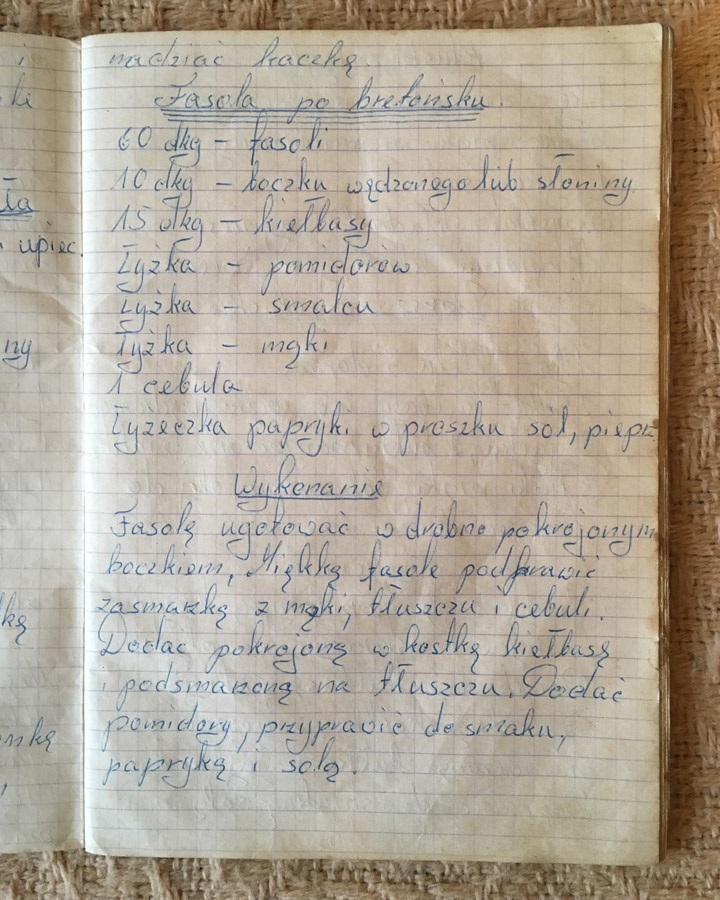 nadziać kaczkę.
Fasola po bretońsku.
60 dkg – fasoli
10 dkg – boczku wędzonego lub słoniny
15 dkg – kiełbasy
Łyżka – pomidorów
Łyżka – smalcu
Łyżka – mąki
1 cebula
Łyżeczka papryki w proszku sól, pieprz
Wykonanie
Fasolę ugotować w drobno pokrojonym
boczkiem, Miękką fasolę podprawić
zasmarzką z mąki, tłuszczu i cebuli.
Dodać pokrojoną w kostkę kiełbasę
i podsmarzoną na tłuszczu. Dodać
pomidory, przyprawić do smaku,
papryką i solą.
upiec.
ny